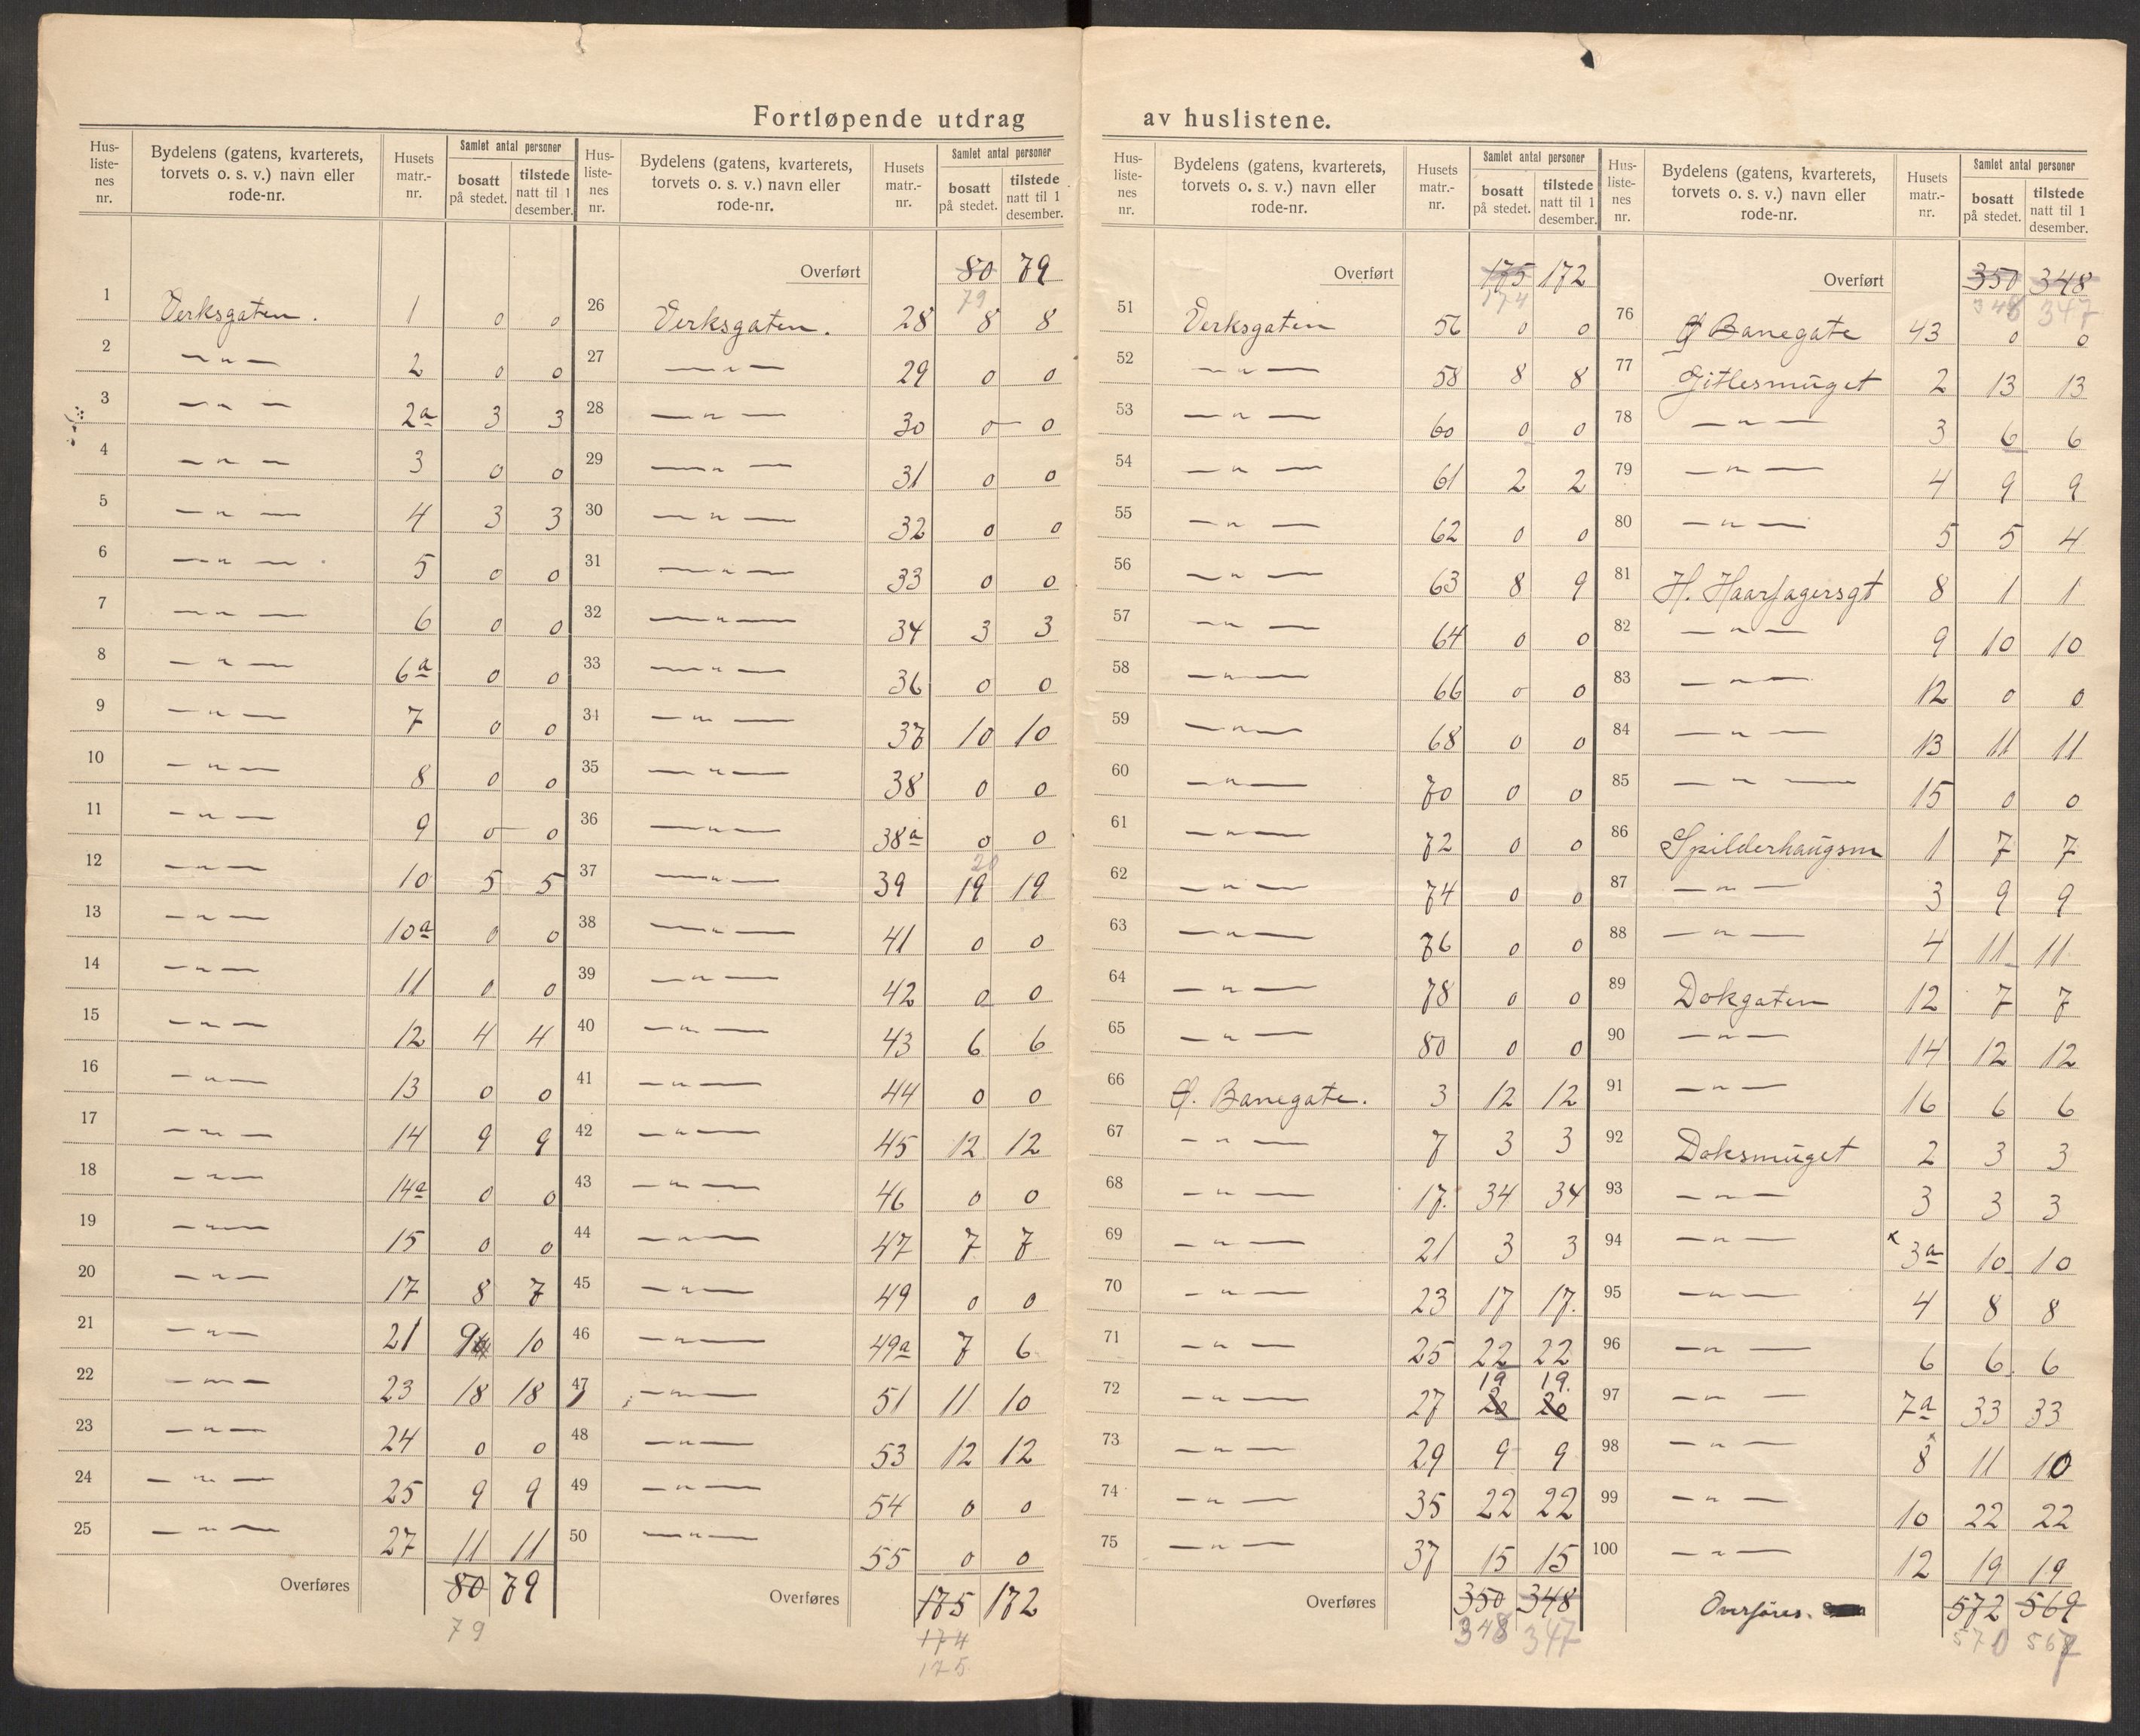 Fortløpende utdrag av huslistene.
Hus-liste-nes nr. | Bydelens (gatens, kvarterets, torvets o. s. v.) navn eller rode-nr. | Husets matr.-nr. | Samlet antal personer bosatt på stedet. | tilstede natt til 1 desember.
1 Verksgaten. 1 0 0
2 — " — 2 0 0
3 — " — 2a 3 3
4 — " — 3 0 0
5 — " — 4 3 3
6 — " — 5 0 0
7 — " — 6 0 0
8 — " — 6a 0 0
9 — " — 7 0 0
10 — " — 8 0 0
11 — " — 9 0 0
12 — " — 10 5 5
13 — " — 10a 0 0
14 — " — 11 0 0
15 — " — 12 4 4
16 — " — 13 0 0
17 — " — 14 9 9
18 — " — 14a 0 0
19 — " — 15 0 0
20 — " — 17 8 7
21 — " — 21 9 10
22 — " — 23 18 18
23 — " — 24 0 0
24 — " — 25 9 9
25 — " — 27 11 11
Overføres 80 79
79
Hus-liste-nes nr. | Bydelens (gatens, kvarterets, torvets o. s. v.) navn eller rode-nr. | Husets matr.-nr. | Samlet antal personer bosatt på stedet. | tilstede natt til 1 desember.
Overført 80 79
79
26 Verksgaten. 28 8 8
27 — " — 29 0 0
28 — " — 30 0 0
29 — " — 31 0 0
30 — " — 32 0 0
31 — " — 33 0 0
32 — " — 34 3 3
33 — " — 36 0 0
34 — " — 37 10 10
35 — " — 38 0 0
36 — " — 38a 0 0
20
37 — " — 39 19 19
38 — " — 41 0 0
39 — " — 42 0 0
40 — " — 43 6 6
41 — " — 44 0 0
42 — " — 45 12 12
43 — " — 46 0 0
44 — " — 47 7 7
45 — " — 49 0 0
46 — " — 49a 7 6
47 — " — 51 11 10
48 — " — 53 12 12
49 — " — 54 0 0
50 — " — 55 0 0
Overføres 175 172
174
175
Hus-liste-nes nr. | Bydelens (gatens, kvarterets, torvets o. s. v.) navn eller rode-nr. | Husets matr.-nr. | Samlet antal personer bosatt på stedet. | tilstede natt til 1 desember.
Overført 175 172
174
51 Verksgaten 56 0 0
52 — " — 58 8 8
53 — " — 60 0 0
54 — " — 61 2 2
55 — " — 62 0 0
56 — " — 63 8 9
57 — " — 64 0 0
58 — " — 66 0 0
59 — " — 68 0 0
60 — " — 70 0 0
61 — " — 72 0 0
62 — " — 74 0 0
63 — " — 76 0 0
64 — " — 78 0 0
65 — " — 80 0 0
66 Ø. Banegate. 3 12 12
67 — " — 7 3 3
68 — " — 17. 34 34
69 — " — 21 3 3
70 — " — 23 17 17.
71 — " — 25 22 22
19 19.
72 — " — 27 20 20
73 — " — 29 9 9
74 — " — 35 22 22
75 — " — 37 15 15
Overføres 350 348
348 347
Hus-liste-nes nr. | Bydelens (gatens, kvarterets, torvets o. s. v.) navn eller rode-nr. | Husets matr.-nr. | Samlet antal personer bosatt på stedet. | tilstede natt til 1 desember.
Overført 350 348
348 347
76 Ø Banegate 43 0 0
77 Gitlesmuget 2 13 13
78 — " — 3 6 6
79 — " — 4 9 9
80 — " — 5 5 4
81 H. Haarfagersgt 8 1 1
82 — " — 9 10 10
83 — " — 12 0 0
84 — " — 13 11 11
85 — " — 15 0 0
86 Spilderhaugsm 1 7 7
87 — " — 3 9 9
88 — " — 4 11 11
89 Dokgaten 12 7 7
90 — " — 14 12 12
91 — " — 16 6 6
92 Doksmuget 2 3 3
93 — " — 3 3 3
94 — " — x 3a 10 10
95 — " — 4 8 8
96 — " — 6 6 6
97 — " — 7a 33 33
98 — " — 8 11 10
99 — " — 10 22 22
100 — " — 12 19 19
Overføres. 572 569
570 567